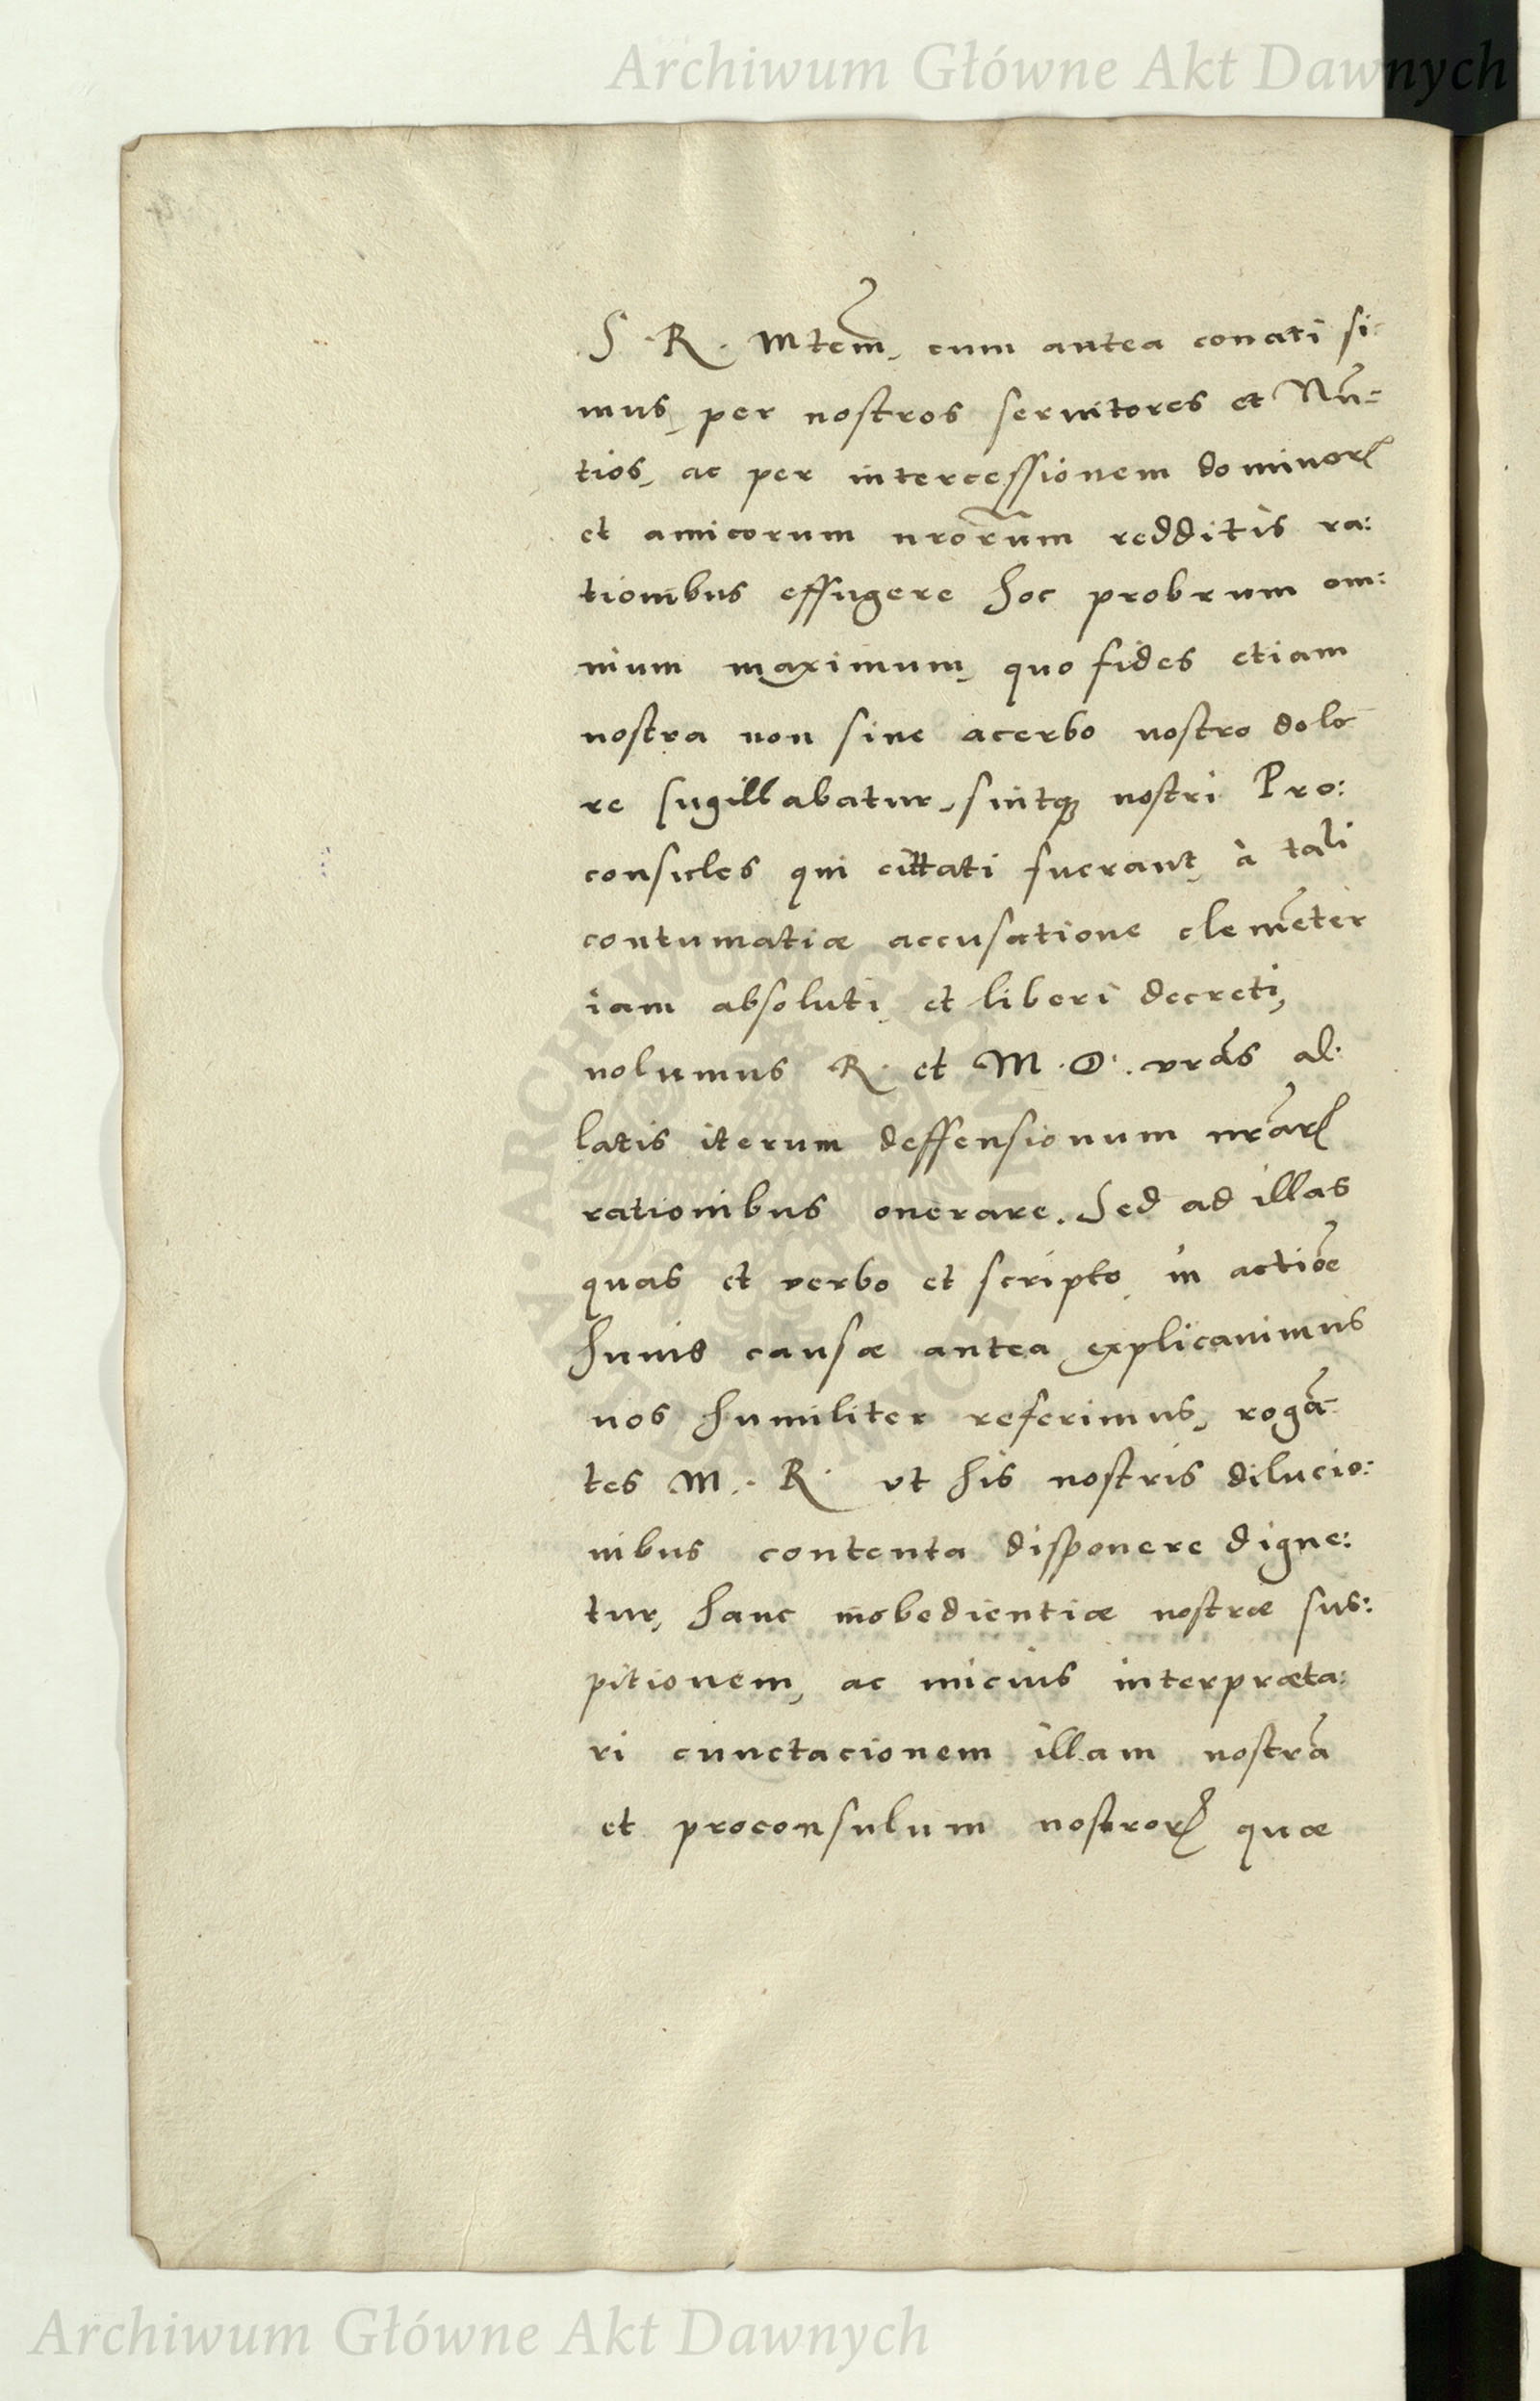 Archiwum Główne Akt Dawnych
S. R. Mtem, cum antea conati si:
mus, per nostros seruitores et Nũ=
tios, ac per intercessionem dominorꝝ
et amicorum nrõrum redditis ra:
tionibus effugere hoc probrum om:
nium maximum, quo fides etiam
nostra non sine acerbo nostro dolo
re sugillabatur, sintqꝫ nostri Pro:
consules qui cittati fuerant, à tali
contumatiæ accusatione clemẽter
iam absoluti, et liberi decreti,
nolumus R. et M. D. vrãs al:
latis iterum deffensionum nrãrꝝ
rationibus onerare. Sed ad illas
quas et verbo et scripto in actiõe
huius causæ antea explicauimus
nos humiliter referimus, rogã=
tes M. R. vt his nostris dilucio:
nibus contenta disponere digne:
tur, hanc inobedientiæ nostræ sus:
pitionem, ac micius interpræta:
ri cunctacionem illam nostrã
et proconsulum nostrorꝝ quæ
ARCHIWUM GŁÓWNE AKT DAWNYCH
Archiwum Główne Akt Dawnych